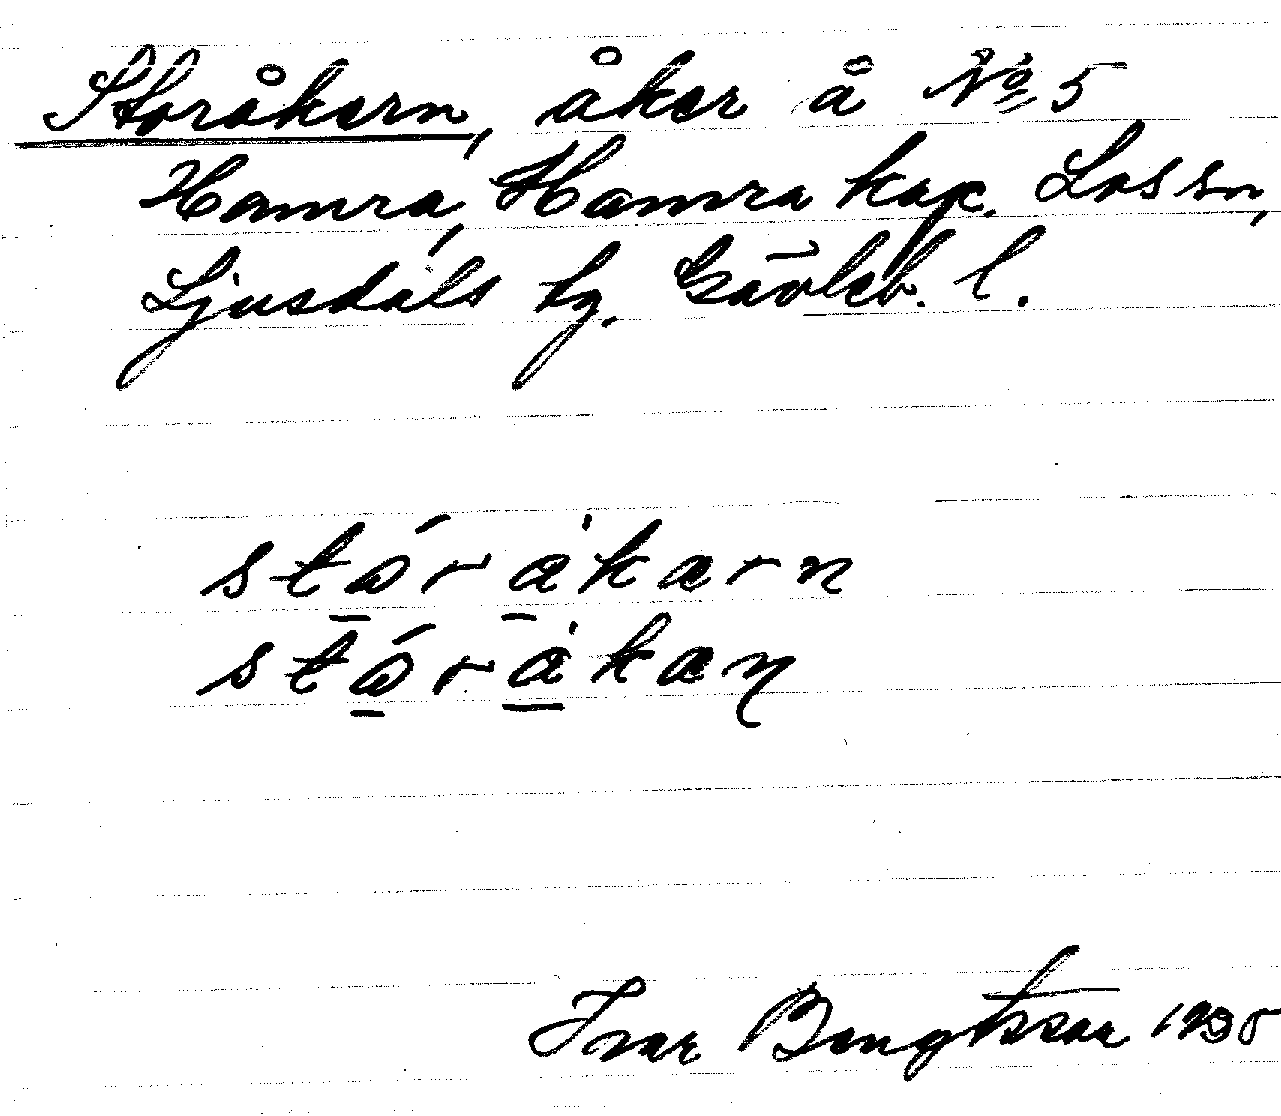 Storåkern, åker å No 5
Hamra, Hamra kap. Los sn,
Ljusdals tg. Gävleb. l.
stǻråkærn
stǻråkæɳ
Ivar Bengtsson 1935